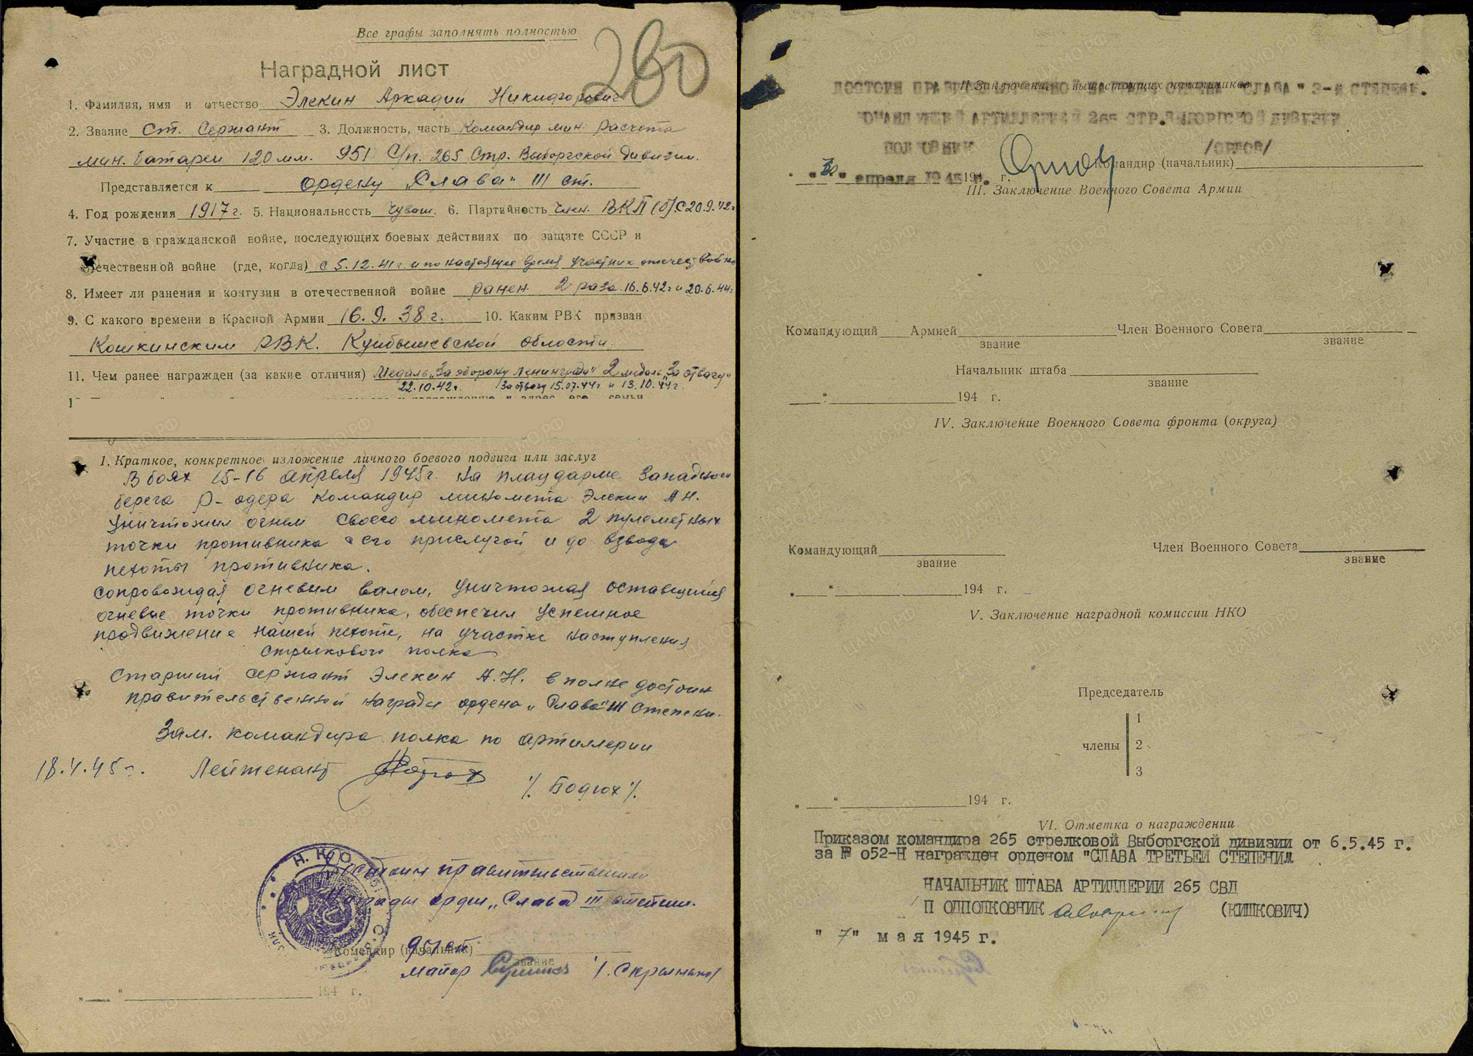 Все графы заполнять полностью
260
Наградной лист
1. Фамилия, имя и отчество Элекин Аркадий Никифорович
2. Звание Ст. Сержант 3. Должность, часть Командир мин. расчета
мин. батареи 120 мм. 951 С/п. 265 Стр. Выборгской дивизии.
Представляется к ордену „Слава" III ст.
4. Год рождения 1917 г. 5. Национальность Чуваш. 6. Партийность Член. ВКП(б) с 20.9.42г
7. Участие в гражданской войне, последующих боевых действиях по защите СССР и
отечественной войне (где, когда) с 5.12.41г и по настоящее время участник отечеств войны
8. Имеет ли ранения и контузии в отечественной войне ранен 2 раза 16.6.42г и 20.6.44г
9. С какого времени в Красной Армии 16.9.38 г. 10. Каким РВК призван
Кошкинским РВК. Куйбышевской области
11. Чем ранее награжден (за какие отличия) Медаль „За оборону Ленинграда" 2 медаль „За отвагу"
22.10.42г. За отвагу 15.07.44г и 13.10.44г.
1. Краткое, конкретное изложение личного боевого подвига или заслуг
В боях 15-16 апреля 1945г. на плацдарме Западного
берега р-Одера командир миномета Элекин А.Н.
уничтожил огнем своего миномета 2 пулеметных
точки противника с его прислугой и до взвода
пехоты противника.
сопровождая огневим валом, уничтожая оставшиеся
огневые точки противника, обеспечил успешное
продвижение нашей пехоти, на участке наступления
стрелкового полка
Старший сержант Элекин А.Н. вполне достоин
правительственной награды ордена „Слава" III Степени.
Зам. командира полка по артиллерии
18.4.45г. Лейтенант /. Бодюх /.
Н.К.О.
Достоин правительственной
награды орден „Слава III степени.
Командир (начальник) 951 сп.
звание
майор
194 г.
II Заключение вышестоящих начальников
ДОСТОИН ПРАВИТЕЛЬСТВЕННОЙ НАГРАДЫ ОРДЕНА "СЛАВА" 3-Й СТЕПЕНИ.
КОМАНДУЮЩИЙ АРТИЛЛЕРИЕЙ 265 СТР.ВЫБОРГСКОЙ ДИВИЗИИ
ПОЛКОВНИК /ОРЛОВ/
Командир (начальник)
"30" апреля 1945 г. 194 г.
III. Заключение Военного Совета Армии
Командующий Армией Член Военного Совета
звание звание
Начальник штаба
звание
" " 194 г.
IV. Заключение Военного Совета фронта (округа)
Командующий Член Военного Совета
звание звание
" " 194 г.
V. Заключение наградной комиссии НКО
Председатель
1
члены 2
3
" " 194 г.
VI. Отметка о награждении
Приказом командира 265 стрелковой Выборгской дивизии от 6.5.45 г.
за № 052-Н награжден орденом "СЛАВА ТРЕТЬЕЙ СТЕПЕНИ"
НАЧАЛЬНИК ШТАБА АРТИЛЛЕРИИ 265 СВД
П ОДПОЛКОВНИК (КИШКОВИЧ)
" 7" мая 1945 г.